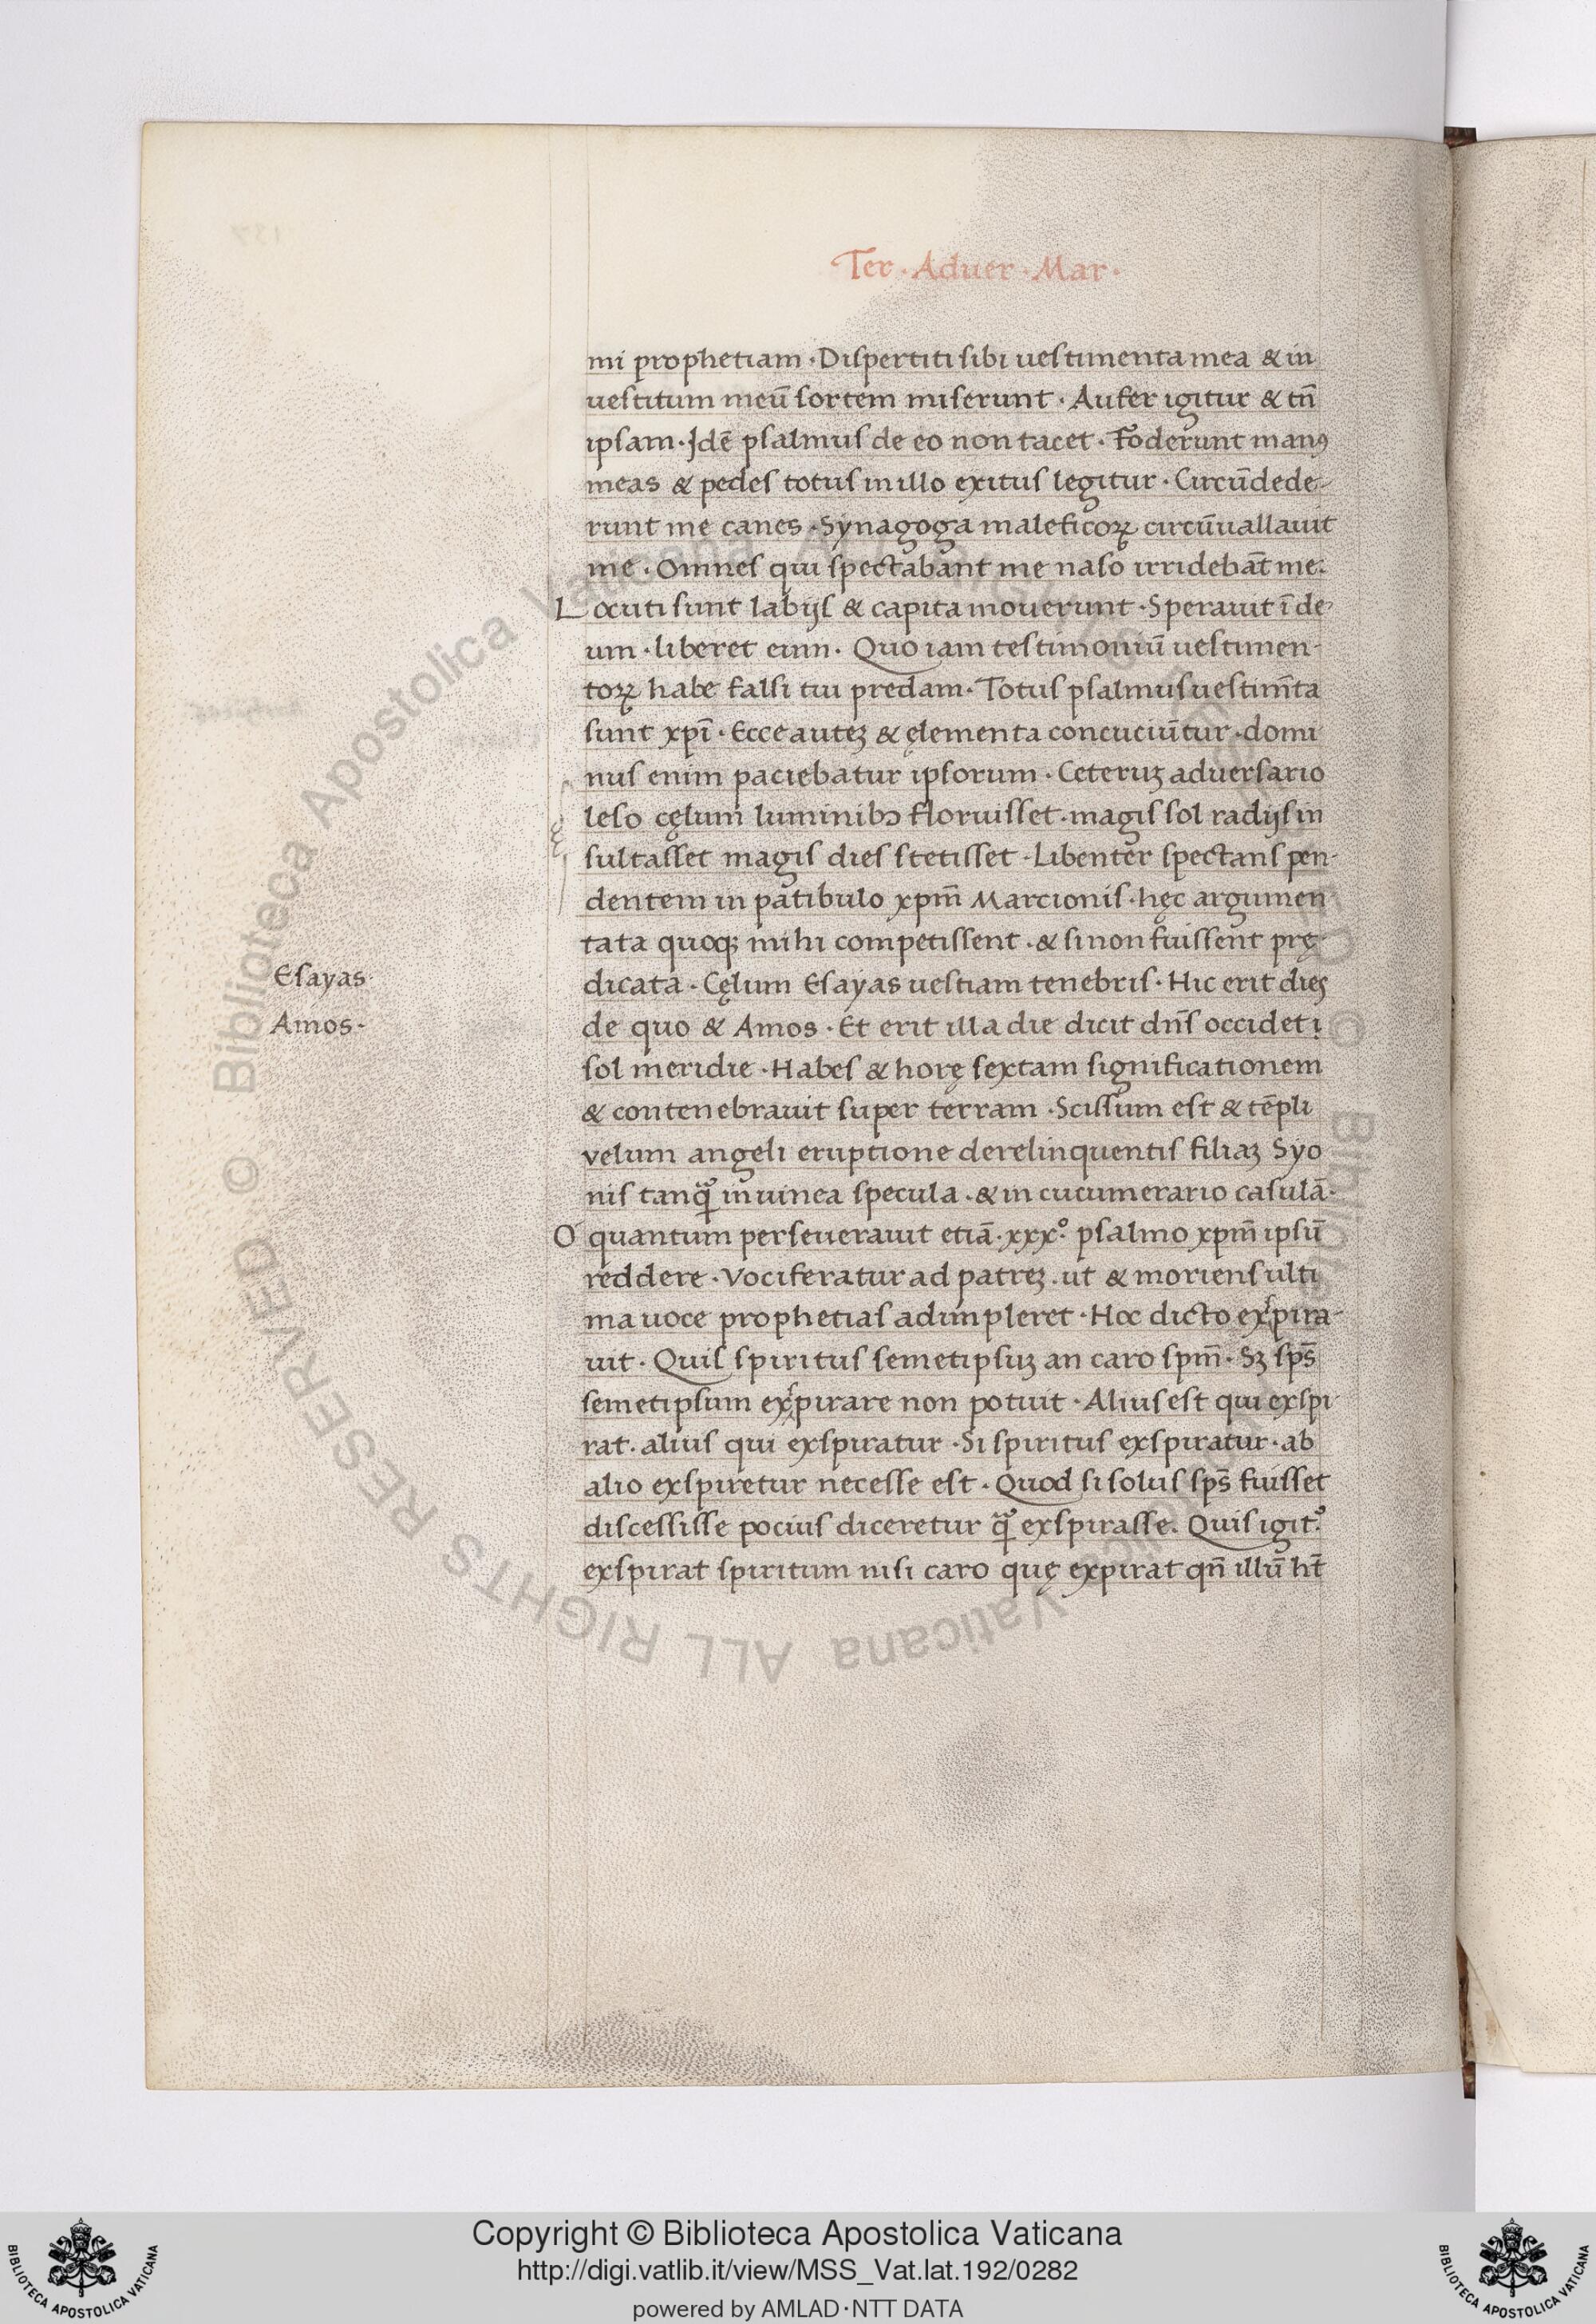 Ter · Aduer · Mar ·
mi prophetiam · Dispertiti sibi uestimenta mea & in
uestitum meū sortem miserunt · Aufer igitur & tn̄
ipsam · Idē psalmus de eo non tacet · Foderunt manꝰ
meas & pedes totus in illo exitus legitur · Circūdede-
runt me canes · Synagoga maleficoꝝ circūuallauit
me · Omnes qui spectabant me naso irridebāt me ·
Locuti sunt labijs & capita mouerunt · Sperauit ī de-
um · liberet eum · Quo iam testimoniū uestimen-
toꝝ habe falsi tui predam · Totus psalmus uestim̄ta
sunt xpī · Ecce auteꝫ & ęlementa concuciūtur · domi
nus enim paciebatur ipsorum · Ceteruꝫ aduersario
leso cęlum luminibꝫ floruisset · magis sol radijs in
sultasset magis dies stetisset · Libenter spectans pen-
dentem in patibulo xpm̄ Marcionis · hęc argumen
tata quoqꝫ mihi competissent · & si non fuissent prę-
dicata · Cęlum Esayas uestiam tenebris · Hic erit dies
de quo & Amos · Et erit illa die dicit dn̄s occidet
sol meridie · Habes & horę sextam significationem
& contenebrauit super terram · Scissum est & tēpli
velum angeli eruptione derelinquentis filiaꝫ Syo
nis tanꝗ̃ in uinea specula · & in cucumerario casulā ·
O quantum perseuerauit etiā · xxxº · psalmo xpm̄ ipsū
reddere · Vociferatur ad patreꝫ · ut & moriens ulti
ma uoce prophetias adimpleret · Hoc dicto exspira-
uit · Quis spiritus semetipsuꝫ an caro spm̄ · Sꝫ sps̄
semetipsum exspirare non potuit · Alius est qui exspi-
rat · alius qui exspiratur · Si spiritus exspiratur · ab
alio exspiretur necesse est · Quod si solus sps̄ fuisset
discessisse pocius diceretur ꝗ̃ exspirasse · Quis igit᷑
exspirat spiritum nisi caro quę expirat qn̄ illū ht̄
Esayas ·
Amos ·
© Biblioteca Apostolica Vaticana ALL RIGHTS RESERVED © Biblioteca Apostolica Vaticana ALL RIGHTS RESERVED
Copyright © Biblioteca Apostolica Vaticana
http://digi.vatlib.it/view/MSS_Vat.lat.192/0282
powered by AMLAD·NTT DATA
BIBLIOTECA APOSTOLICA VATICANA
BIBLIOTECA APOSTOLICA VATICANA